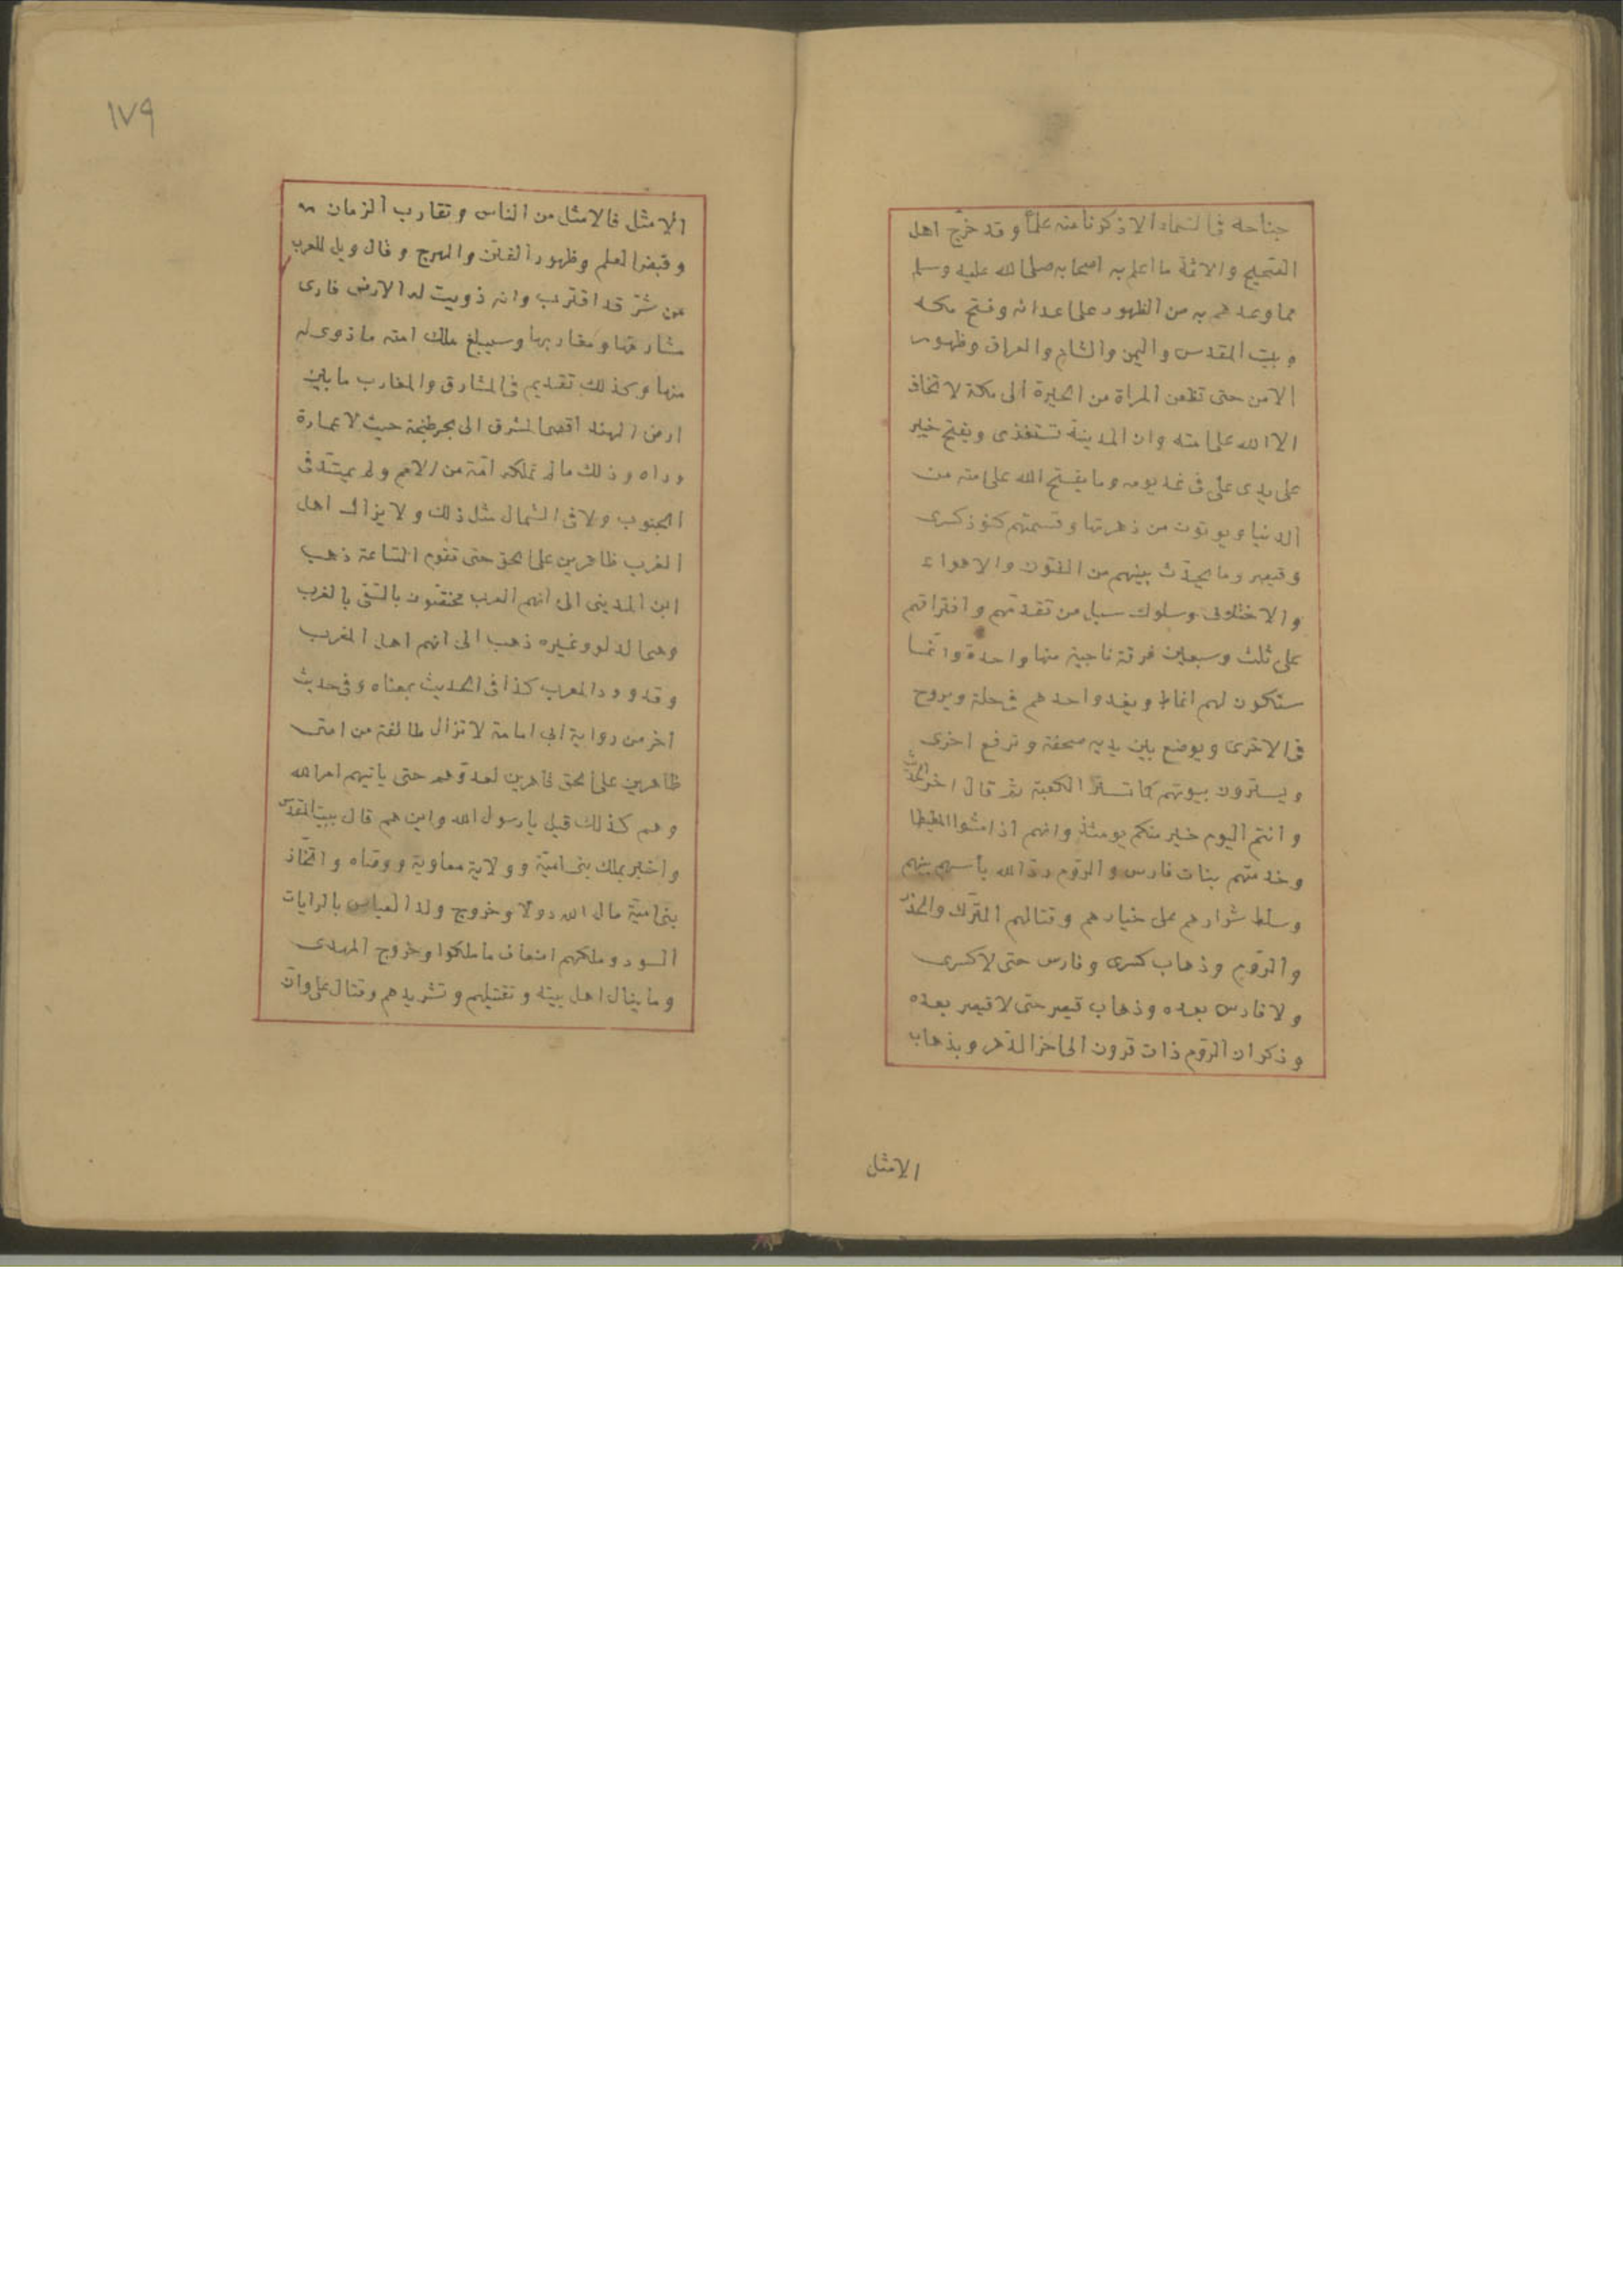 جناحه فى السماء الا ذكرنا منه علما و قد خرّج اهل
الصحيح والائمة ما اعلم به اصحابه صلى الله عليه وسلم
مما وعدهم به من الظهور على اعدائه وفتح مكه
و بيت المقدس واليمن والشام والعراق وظهور
الامن حتى تظعن المراة من الحيرة الى مكة لا تخاف
الا الله على امته وان المدينة ستغذى ويفتح خيبر
على يدى على فى غد يومه وما يفتح الله على امته من
الدنيا ويوتون من زهرتها وقسمتهم كنوز كسرى
وقيصر وما يحدث بينهم من الفتون والاهواء
والاختلاف وسلوك سبيل من تقدمهم وافتراقهم
على ثلث وسبعين فرقة ناجية منها واحدة وانما
ستكون لهم انماط ويغدوا احدهم فى حلة ويروح
فى الاخرى ويوضع بين يديه صحفة وترفع اخرى
ويسترون بيوتهم كما تستر الكعبة ثم قال اخر الحديث
وانتم اليوم خير منكم يومئذ وانهم اذا مشوا المطيطا
وخدمتهم بنات فارس والروم رد الله بأسهم بينهم
وسلط شرارهم على خيارهم وقتالهم الترك والخزر
والروم وذهاب كسرى وفارس حتى لا كسرى
ولا فارس بعده وذهاب قيصر حتى لا قيصر بعده
وذكر ان الروم ذات قرون الى اخر الدهر وبذهاب
الامثل
١٧٩
الامثل فالامثل من الناس وتقارب الزمان
وقبض العلم وظهور الفتن والهرج وقال ويل للعرب
من شرّ قد اقترب وانه زويت له الارض فارى
مشارقها ومغاربها وسيبلغ ملك امته ما زوى له
منها وكذلك تقديم فى المشارق والمغارب ما بين
ارض الهند اقصى المشرق الى بحر طنجة حيث لا عمارة
وراه وذلك ما لم تملكه امة من الامم ولم يمتد فى
الجنوب ولا فى الشمال مثل ذلك ولا يزال اهل
الغرب ظاهرين على الحق حتى تقوم الساعة ذهب
ابن المدينى الى انهم العرب مختصون بالسقى بالغرب
وهى الدلو وغيره ذهب الى انهم اهل المغرب
وقد ورد المغرب كذا فى الحديث بمعناه وفى حديث
اخر من رواية ابى امامة لا تزال طائفة من امتى
ظاهرين على الحق قاهرين لعدوهم حتى ياتيهم امر الله
وهم كذلك قيل يا رسول الله واين هم قال ببيت المقدس
واخبر بملك بنى امية وولاية معاوية ووصاه واتخاذ
بنى امية مال الله دولا وخروج ولد العباس بالرايات
السود وملكهم اضعاف ما ملكوا وخروج المهدى
وما ينال اهل بيته وتقتيلهم وتشريدهم وقتال على وان